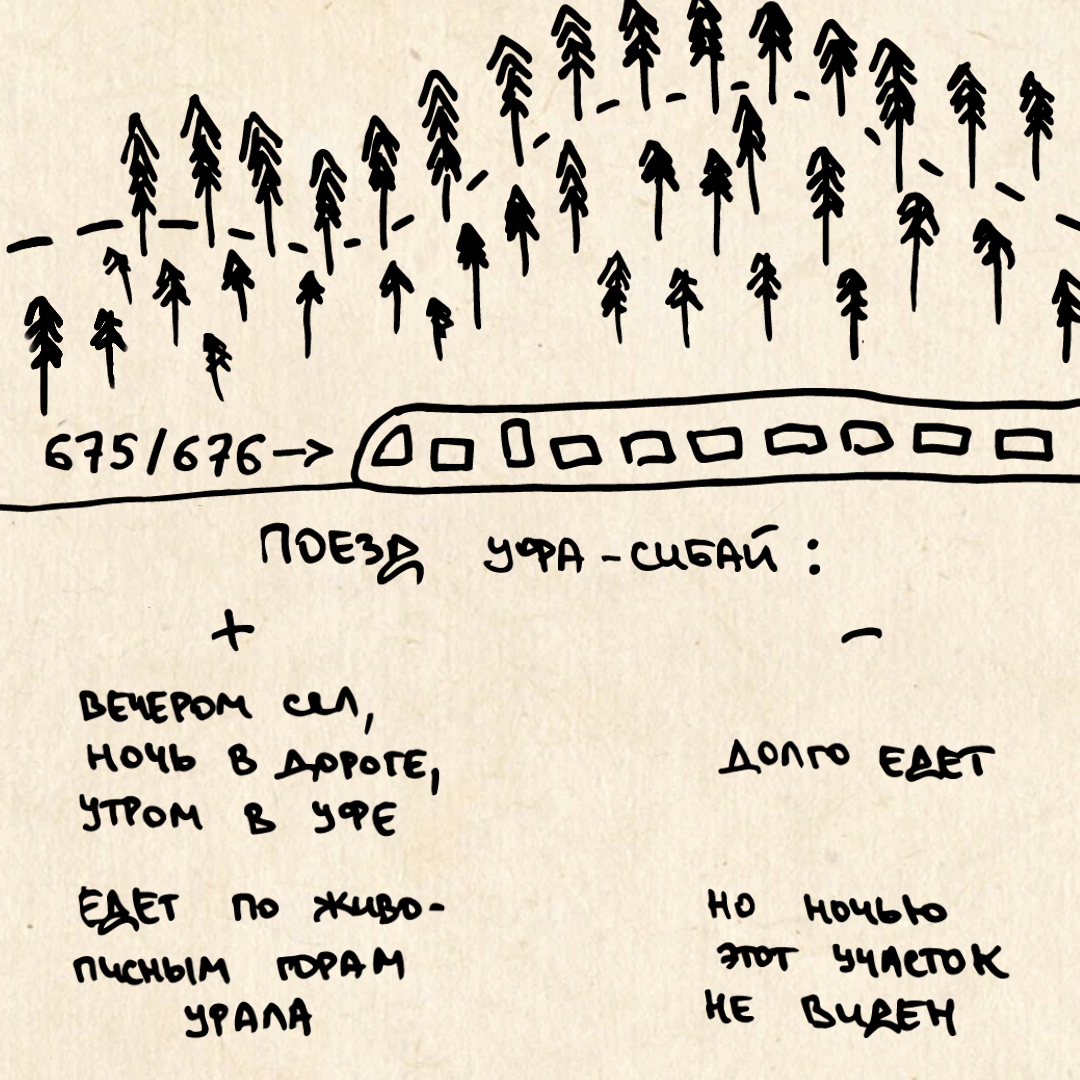 675/676→
ПОЕЗД УФА-СИБАЙ:
+
-
ВЕЧЕРОМ СЕЛ,
НОЧЬ В ДОРОГЕ,
УТРОМ В УФЕ
ДОЛГО ЕДЕТ
ЕДЕТ ПО ЖИВО-
ПИСНЫМ ГОРАМ
УРАЛА
НО НОЧЬЮ
ЭТОТ УЧАСТОК
НЕ ВИДЕН